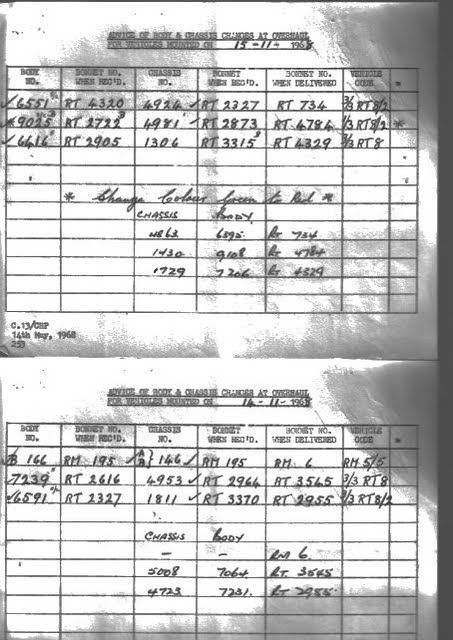 ADVICE OF BODY & CHASSIS CHANGES AT OVERHAUL
FOR VEHICLES MOUNTED ON 15-11-1968
BODY NO. BONNET NO. WHEN REC'D. CHASSIS NO. BONNET WHEN REC'D. BONNET NO. WHEN DELIVERED VEHICLE CODE *
✓6551 RT 4320 4924 ✓ RT 2327 RT 734 3/3 RT8/2
*9025 RT 2722 4981 ✓ RT 2873 RT 4784 1/3 RT8/2 *
✓6416 RT 2905 1306 RT 3315 RT 4329 3/3 RT8
* Change Colour Green to Red *
CHASSIS BODY
4863 6595 RT 734
1430 9108 RT 4784
1729 7206 RT 4329
C.13/CHP
14th May, 1968
253
ADVICE OF BODY & CHASSIS CHANGES AT OVERHAUL
FOR VEHICLES MOUNTED ON 14-11-1968
BODY NO. BONNET NO. WHEN REC'D. CHASSIS NO. BONNET WHEN REC'D. BONNET NO. WHEN DELIVERED VEHICLE CODE *
✓B 166 RM 195 ✓ A B } 146 ✓ RM 195 RM 6 RM 5/5
✓7239 RT 2616 4953 ✓ RT 2964 RT 3545 3/3 RT8
✓6591 RT 2327 1811 ✓ RT 3370 RT 2955 3/3 RT8/2
CHASSIS BODY
— — RM 6
5008 7064 RT 3545
4723 7231. RT 2955